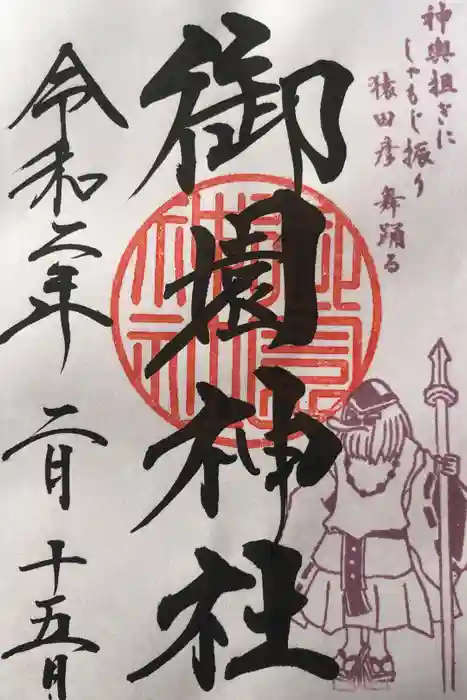 神輿担ぎに
しゃもじ振り
猿田彦 舞踊る
御園神社
令和二年 二月 十五日